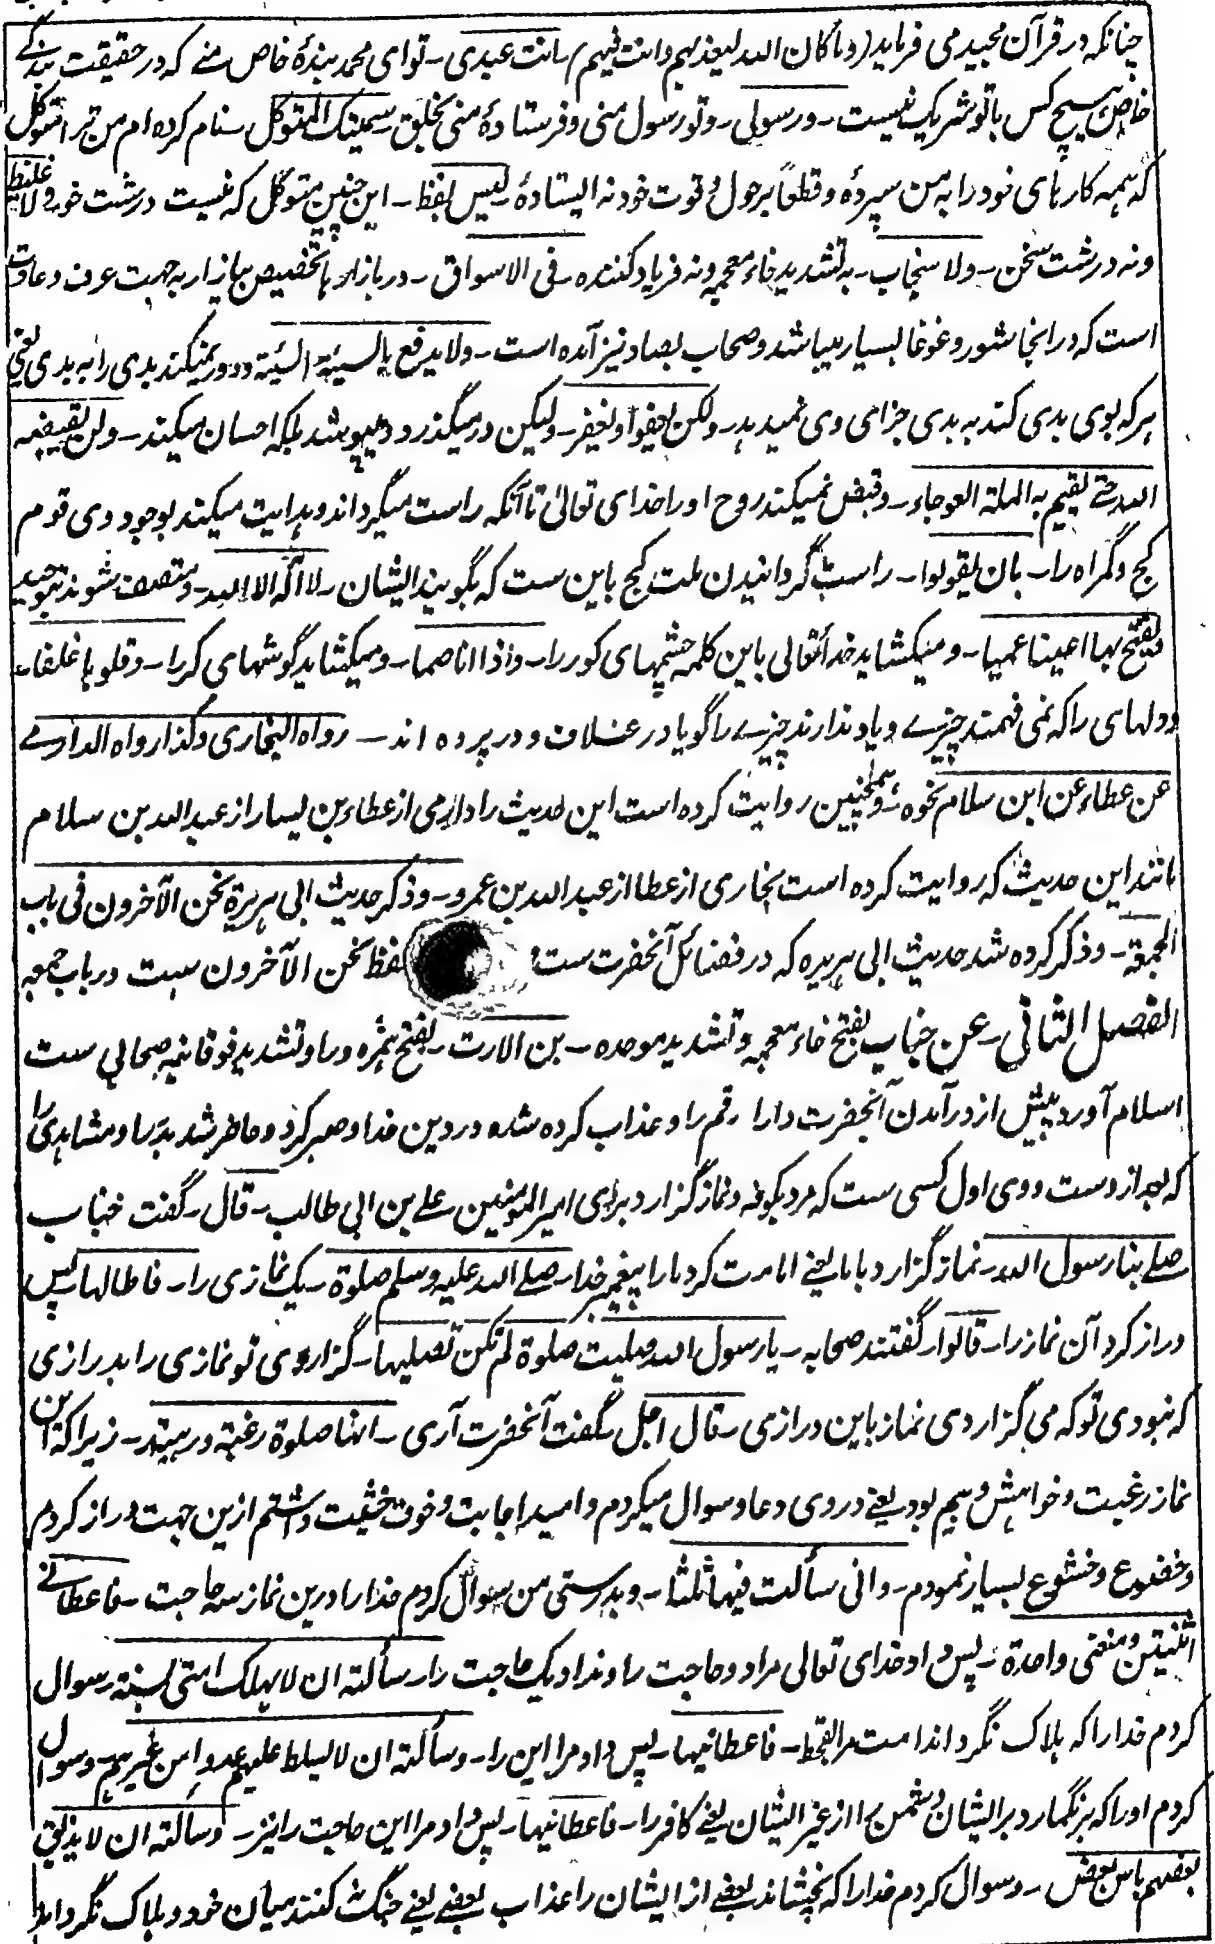 چنانکه در قرآن مجید می فرماید (وما کان الله لیعذبهم وانت فیهم) انت عبدی ـ تو ای محمد بندهٔ خاص منے که در حقیقت بندگے
خاص هیچ کس با تو شریک نیست ـ ورسولی ـ وتو رسول منی وفرستادهٔ منی بخلق ـ سمیتک المتوکل ـ نام کرده ام من ترا متوکل
که همه کارهای خود را به من سپردهٔ وقطعاً بر حول وقوت خود نه ایستادهٔ ـ لیس بفظ ـ این چنین متوکل که نیست درشت خو ولا غلیظ
ونه درشت سخن ـ ولا سخاب ـ به تشدید خاء معجمه ونه فریاد کننده ـ فی الاسواق ـ در بازارها تخصیص ببازار به جهت عرف وعادت
است که در اینجا شور وغوغا بسیار میباشد وصخاب بصاد نیز آمده است ـ ولا یدفع بالسیئة السیئة ودور نمیکند بدی را به بدی یعنی
هر که بوی بدی کند به بدی جزای وی نمیدهد ـ ولکن یعفو او یغفر ـ ولیکن در میگذرد ومیپوشد بلکه احسان میکند ـ ولن یقبضه
الله حتے یقیم به الملة العوجاء ـ وقبض نمیکند روح او را خدای تعالیٰ تا آنکه راست میگرداند وهدایت میکند بوجود وی قوم
کج وگمراه را ـ بان یقولوا ـ راست گردانیدن ملت کج باین ست که بگویند ایشان ـ لا اله الا الله ـ ومتصف شوند بتوحید
ویفتح بها اعینا عمیا ـ ومیکشاید خدا تعالی باین کلمه چشمهای کور را ـ واذانا صما ـ ومیکشاید گوشهای کر را ـ وقلوبا غلفاء
ودلهای را که نمی فهمند چیزے ویاد ندارند چیزے را گویا در غلاف ودر پرده اند ـ رواه البخاری وکذا رواه الدارمے
عن عطاء عن ابن سلام نحوه ـ وهمچنین روایت کرده است این حدیث را دارمی از عطاء بن یسار از عبد الله بن سلام
مانند این حدیث که روایت کرده است بخاری از عطا از عبد الله بن عمرو ـ وذکر حدیث ابی هریرة نحن الآخرون فی باب
الجمعة ـ وذکر کرده شد حدیث ابی هریره که در فضائل آنحضرت ست لفظ نحن الآخرون ست در باب جمعه
الفصل الثانی ـ عن خباب بفتح خاء معجمه وتشدید موحده ـ بن الارت ـ بفتح همزه ورا وتشدید فوقانیه صحابی ست
اسلام آورد پیش از در آمدن آنحضرت دار ارقم را وعذاب کرده شده در دین خدا وصبر کرد وحاضر شد بدر را ومشاهدی را
که بعد از وست ووی اول کسی ست که مرد بکوفه ونماز گزارد بر وی امیر المومنین علے بن ابی طالب ـ قال ـ گفت خباب
صلے بنا رسول الله ـ نماز گزارد با ما یعنے امامت کرد ما را پیغمبر خدا ـ صلے الله علیه وسلم صلوة ـ یک نمازی را ـ فاطالها پس
دراز کرد آن نماز را ـ قالوا ـ گفتند صحابه ـ یا رسول الله صلیت صلوة لم تکن تصلیها ـ گزاردی تو نمازی را بدرازی
که نبودی تو که می گزاردی نماز باین درازی ـ قال اجل ـ گفت آنحضرت آری ـ انها صلوة رغبة ورهبة ـ زیرا که این
نماز رغبت وخواهش وبیم بود یعنے در وی دعا وسوال میکردم وامید اجابت وخوف خشیت داشتم ازین جهت دراز کردم
وخضوع وخشوع بسیار نمودم ـ وانی سألت فیها ثلثا ـ وبدرستی من سوال کردم خدا را درین نماز سه حاجت ـ فاعطانے
اثنتین ومنعنی واحدة ـ پس داد خدای تعالی مرا دو حاجت را وندا دیک حاجت را ـ سألته ان لا یهلک امتی بسنة سوال
کردم خدا را که هلاک نگرداند امت مرا بقحط ـ فاعطانیها ـ پس داد مرا این را ـ وسألته ان لا یسلط علیهم عدوا من غیرهم ـ وسوال
کردم او را که بر نگمارد بر ایشان دشمن را از غیر ایشان یعنے کافر را ـ فاعطانیها ـ پس داد مرا این حاجت را نیز ـ وسألته ان لا یذیق
بعضهم باس بعض ـ وسوال کردم خدا را که نچشاند بعضے از ایشان را عذاب بعضے یعنے جنگ نکنند میان خود وهلاک نگرداند